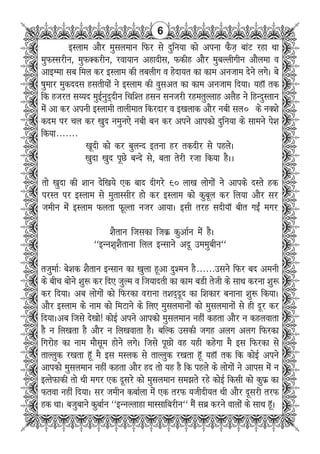 6
इस्लाम और मुसलमान फिर से दुनिया को अपना फ़ैज़ बांट रहा था
मुफस्सरीन, मुफक्करीन, रवायान अहादीस, फकीह और मुबल्लीगीन औलमा व
आइम्मा सब मिल कर इस्लाम की तबलीग व हेदायत का काम अनजाम देने लगे। बे
षुमार मुकददस हसतीयों ने इस्लाम की वुसअत का काम अनजाम दिया। यहाँ तक
कि हजरत सय्यद मुईनुद्दीन चिशित हसन सनजरी रहमतुल्लाह अलैह ने हिन्दुस्तान
में आ कर अपनी इस्लामी तालीमात किरदार व इखलाक और नबी सल० के नक्शे
कदम पर चल कर खुद नमुनऐ नबी बन कर अपने आपको दुनिया के सामने पेश
किया.......
खूदी को कर बुलन्द इतना हर तकदीर से पहले।
खुदा खुद पूछे बन्दे से, बता तेरी रजा किया है।।
तो खुदा की शान देखिये एक बाद दीगरे ९० लाख लोगों ने आपके दस्ते हक
परस्त पर इस्लाम से मुतास्सीर हो कर इस्लाम को कुबूल कर लिया और सर
जमीन में इस्लाम फलता फूल्ता नजर आया। इसी तरह सदीयाँ बीत गई मगर
शैतान जिसका जिक्र कुऑन में है।
‘‘इन्नश्शैताना लिल इन्साने अदू उममुबीन‘‘
तजुर्माः बेशक शैतान इन्सान का खुला हूआ दुश्मन है......उसने फिर बद अमनी
के बीच बोने शुरू कर दिए जुल्म व जियादती का काम बडी तेजी के साथ करना शुरू
कर दिया। अब लोगों को फिरका वराना तशदूदूद का शिकार बनाना शुरू किया।
और इस्लाम के नाम को मिटाने के लिए मुसलमानों को मुसलमानों से ही दूर कर
दिया।अब जिसे देखों! कोई अपने आपको मुसलमान नहीं कहता और न कहलवाता
है न लिखता है और न लिखवाता है। बल्कि उसकी जगह अलग अलग फिरका
गिरोह का नाम मौसूम होने लगे। जिसे पूछो वह यही कहेगा मै इस फिरका से
ताल्लुक रखता हूँ मै इस मस्लक से ताल्लुक रखता हूँ यहाँ तक कि कोई अपने
आपको मुसलमान नहीं कहता और हद तो यह है कि पहले के लोगों ने आपस में न
इलेफाकी तो थी मगर एक दूसरे को मुसलमान समझते रहे कोई किसी को कुफ्र का
फतवा नहीं दिया। सर जमीन कर्बाला में एक तरफ यजीदीयत थी और दूसरी तरफ
हक था। बजुबाने कुर्बान ‘‘इन्नल्लाहा मास्साबिरीन‘‘ मैं सब्र करने वालों के साथ हूँ।